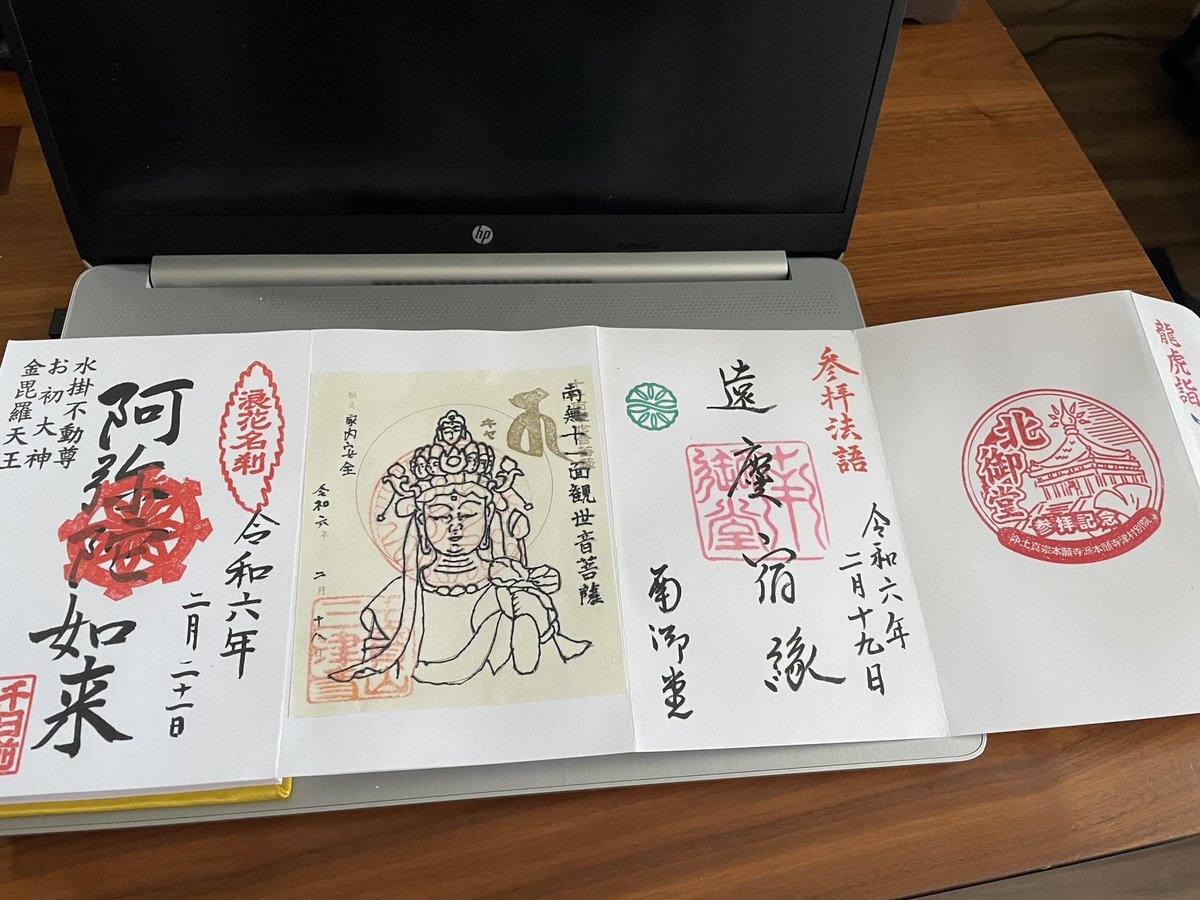 hp
龍虎詣
北御堂
参拝記念
浄土真宗本願寺派本願寺津村別院
参拝法語
令和六年
二月十九日
遠慶宿縁
南御堂
南御堂
南無十一面観世音菩薩
キャ
願文 家内安全
令和六年 二月十八日
浪花名刹
令和六年
二月二十一日
阿弥陀如来
水掛不動尊
お初大神
金毘羅天王
千日前